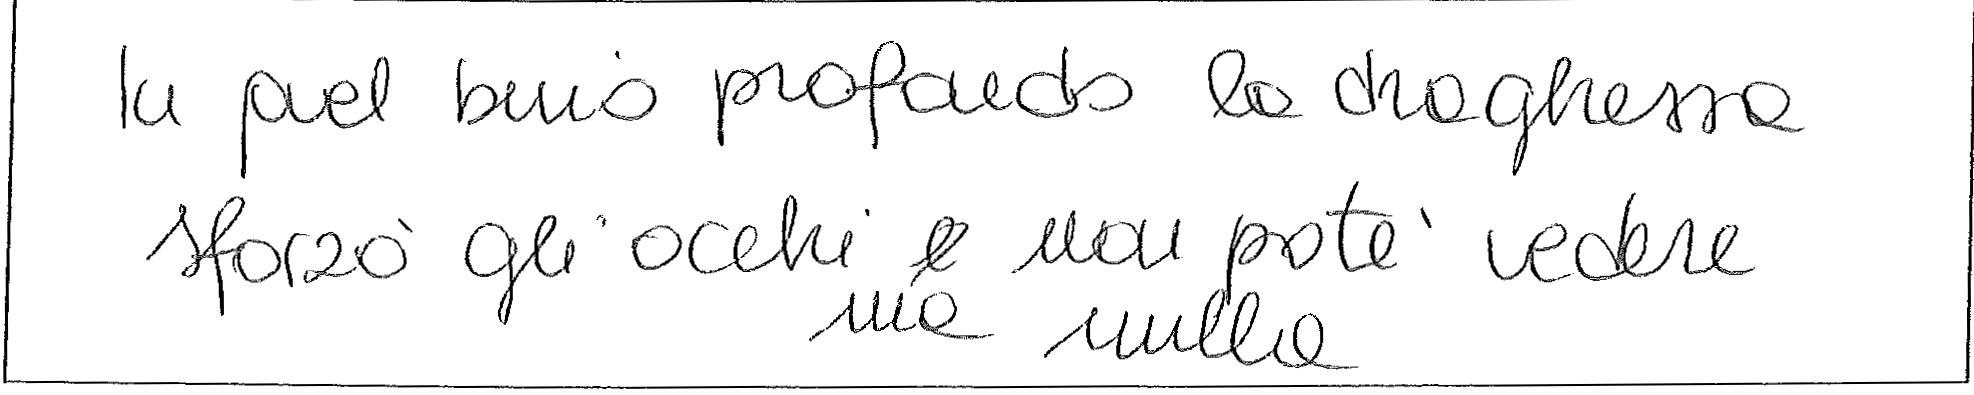 In quel buio profondo la draghessa
sforzò gli occhi e non potè vedere
ma nulla